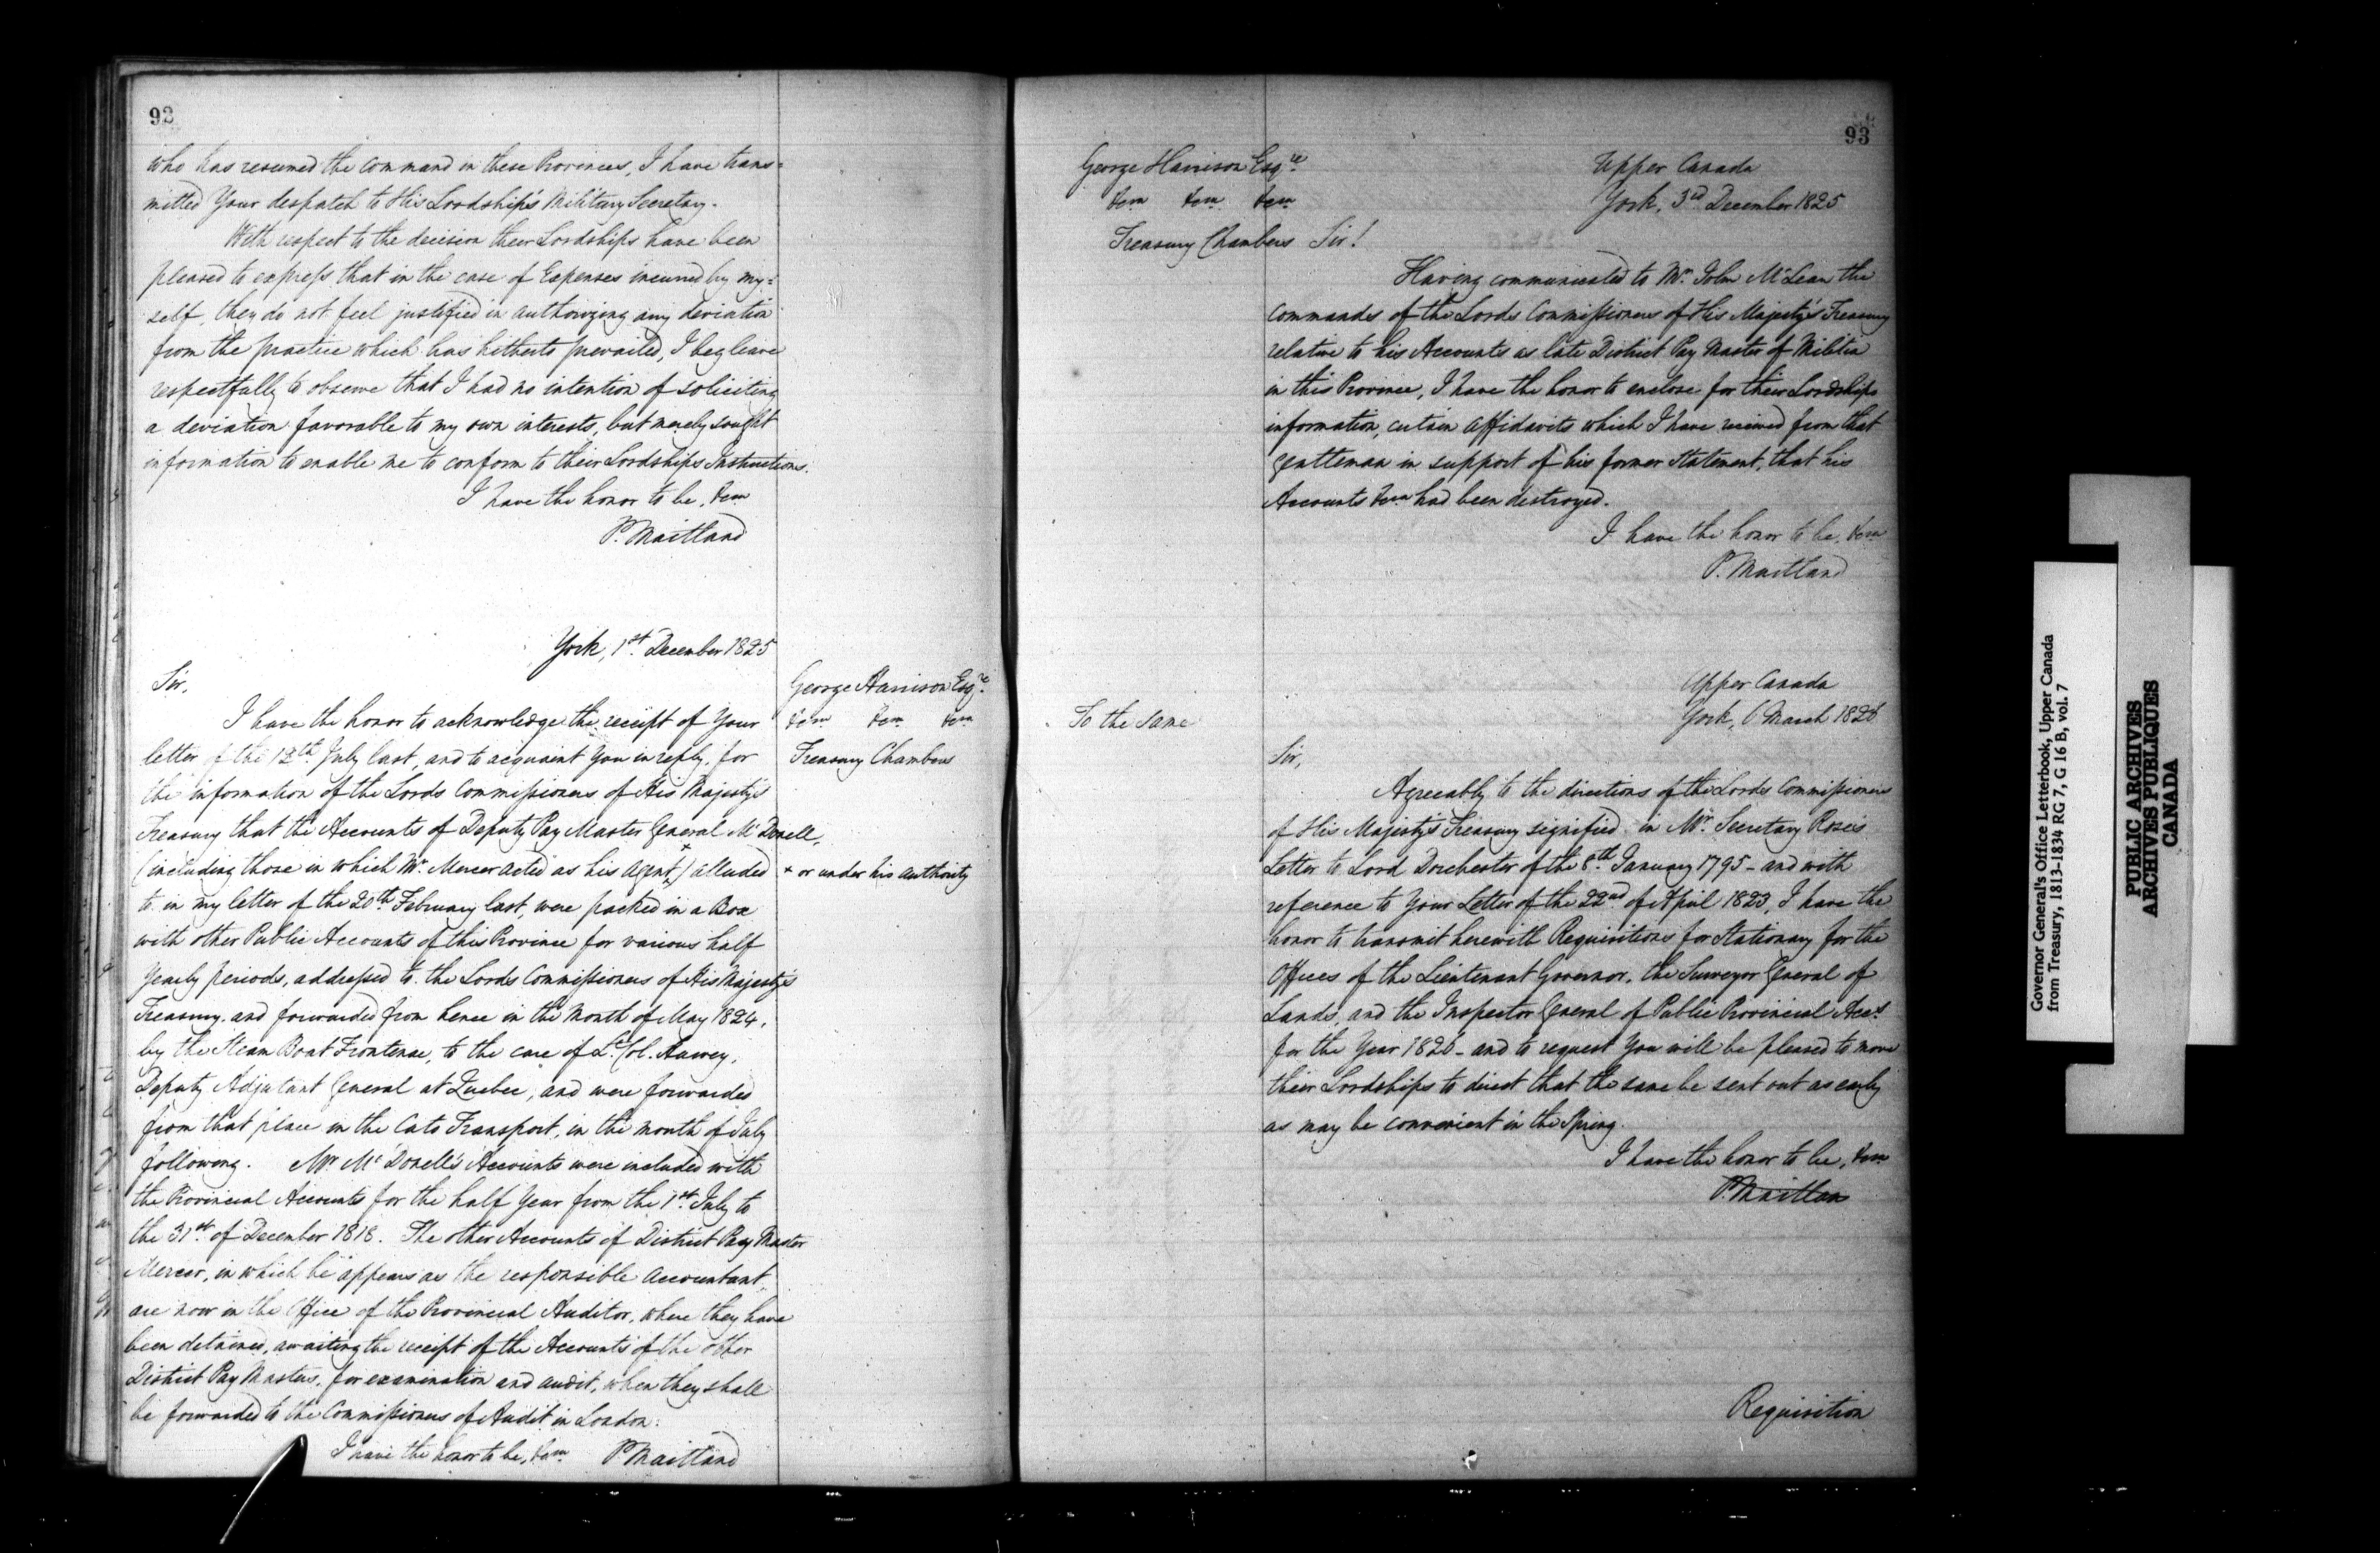 92
who has resumed the command in these Provinces, I have trans=
mitted Your despatch to His Lordship's Military Secretary.
With respect to the decision their Lordships have been
pleased to express that in the case of Expenses incurred by my=
self, they do not feel justified in authorizing any deviation
from the practice which has hitherto prevailed, I beg leave
respectfully to observe that I had no intention of soliciting
a deviation favorable to my own interests, but merely sought
information to enable me to conform to their Lordships Instructions.
I have the honor to be, &cª
P. Maitland
York, 1st December 1825
George Harrison Esqre
&cª &cª &cª
Treasury Chambers
Sir,
I have the honor to acknowledge the receipt of Your
letter of the 12th July last, and to acquaint You in reply, for
the information of the Lords Commissioners of His Majesty's
Treasury that the Accounts of Deputy Pay Master General McDonell,
(including those in which Mr Mercer acted as his agent +) alluded
+ or under his authority
to in my letter of the 20th February last, were packed in a Box
with other Public Accounts of this Province for various half
Yearly periods, addressed to the Lords Commissioners of His Majesty's
Treasury, and forwarded from hence in the Month of May 1824,
by the Steam Boat Frontenac, to the care of Lt Col. Harvey,
Deputy Adjutant General at Quebec, and were forwarded
from that place in the Cato Transport, in the month of July
following. Mr McDonell's Accounts were included with
the Provincial Accounts for the half Year from the 1st July to
the 31st of December 1818. The other Accounts of District Pay Master
Mercer, in which he appears as the responsible accountant,
are now in the Office of the Provincial Auditor, where they have
been detained, awaiting the receipt of the Accounts of the other
District Pay Masters, for examination and audit, when they shall
be forwarded to the Commissioners of Audit in London.
I have the honor to be, &cª P Maitland
93
George Harrison Esqre
&cª &cª &cª
Treasury Chambers
Upper Canada
York, 3rd December 1825
Sir!
Having communicated to Mr John McLean the
commands of the Lords Commissioners of His Majesty's Treasury
relative to his Accounts as late District Pay Master of Militia
in this Province, I have the honor to enclose for their Lordships
information, certain affidavits which I have received from that
gentleman in support of his former statement, that his
Accounts &cª had been destroyed.
I have the honor to be, &cª
P. Maitland
To the Same
Upper Canada
York, 6 March 1826
Sir,
Agreeably to the directions of the Lords Commissioners
of His Majesty's Treasury signified in Mr Secretary Rose's
Letter to Lord Dorchester of the 8th January 1795 - and with
reference to Your Letter of the 22nd of April 1823, I have the
honor to transmit herewith Requisitions for Stationary for the
Offices of the Lieutenant Governor, the Surveyor General of
Lands, and the Inspector General of Public Provincial Accts
for the Year 1826 - and to request You will be pleased to move
their Lordships to direct that the same be sent out as early
as may be convenient in the Spring.
I have the honor to be, &cª
P. Maitland
Requisition
Governor General's Office Letterbook, Upper Canada
from Treasury, 1813-1834 RG 7, G 16 B, vol. 7
PUBLIC ARCHIVES
ARCHIVES PUBLIQUES
CANADA